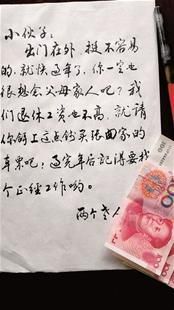 小伙子：
出门在外，挺不容易
的，就快过年了，你一定也
很想念父母家人吧？我
们退休工资也不高，就请
你饷上这点钱买张回家的
车票吧！过完年后记得要找
个正经工作哟。
两个老人
100